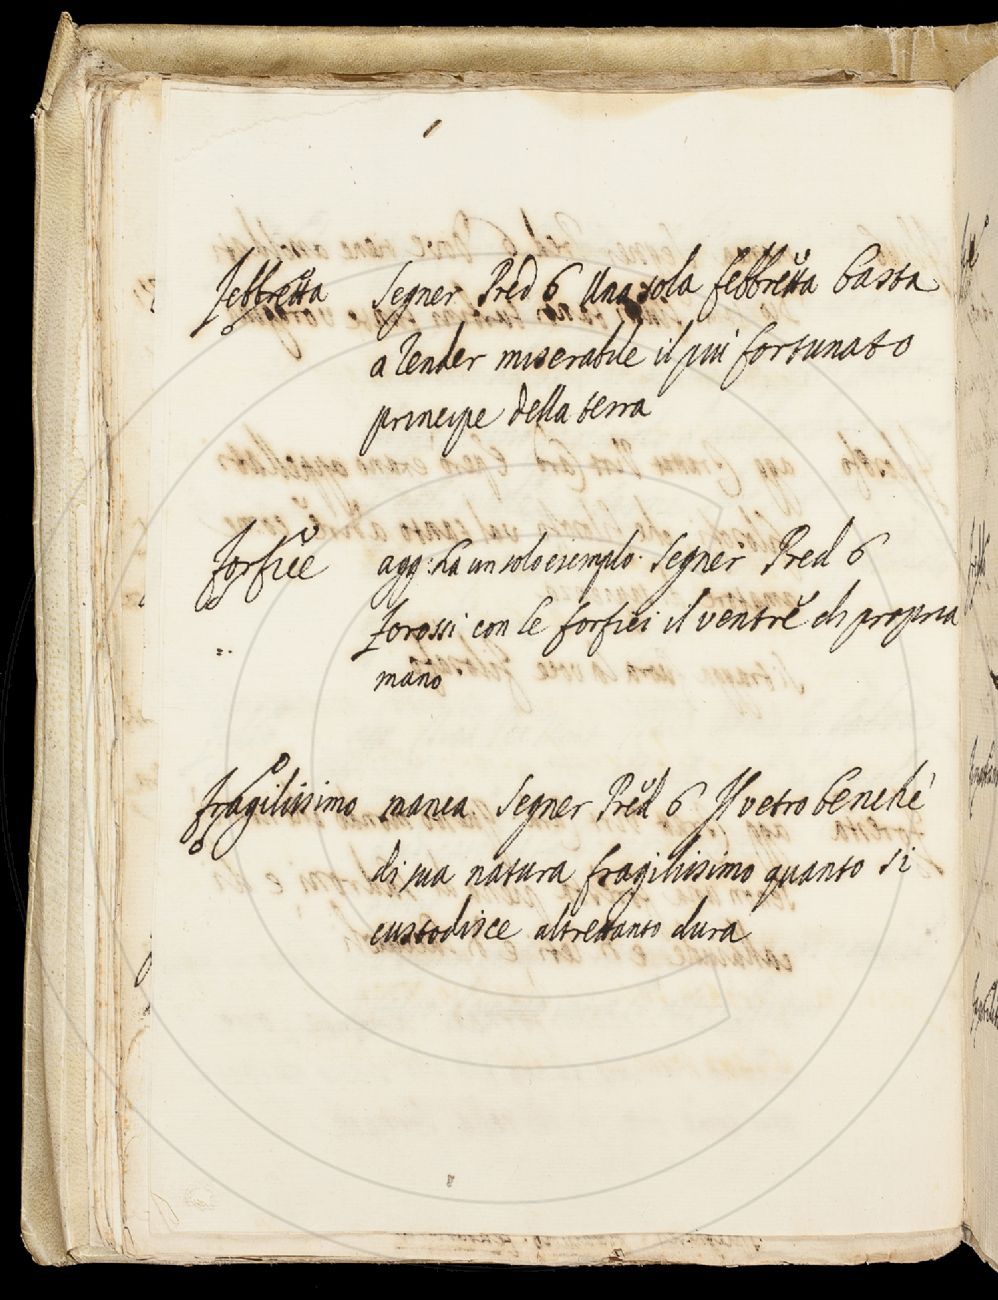 Febbretta Segner Pred 6 Una sola febbretta basta
a render miserabile il più fortunato
principe della terra
Forfice agg: ha un solo esemplo. Segner Pred 6
Forossi con le forfici il ventre di propria
mano
Fragilissimo manca Segner Pred 6 Il vetro benché
di sua natura fragilissimo quanto si
custodisce altrettanto dura